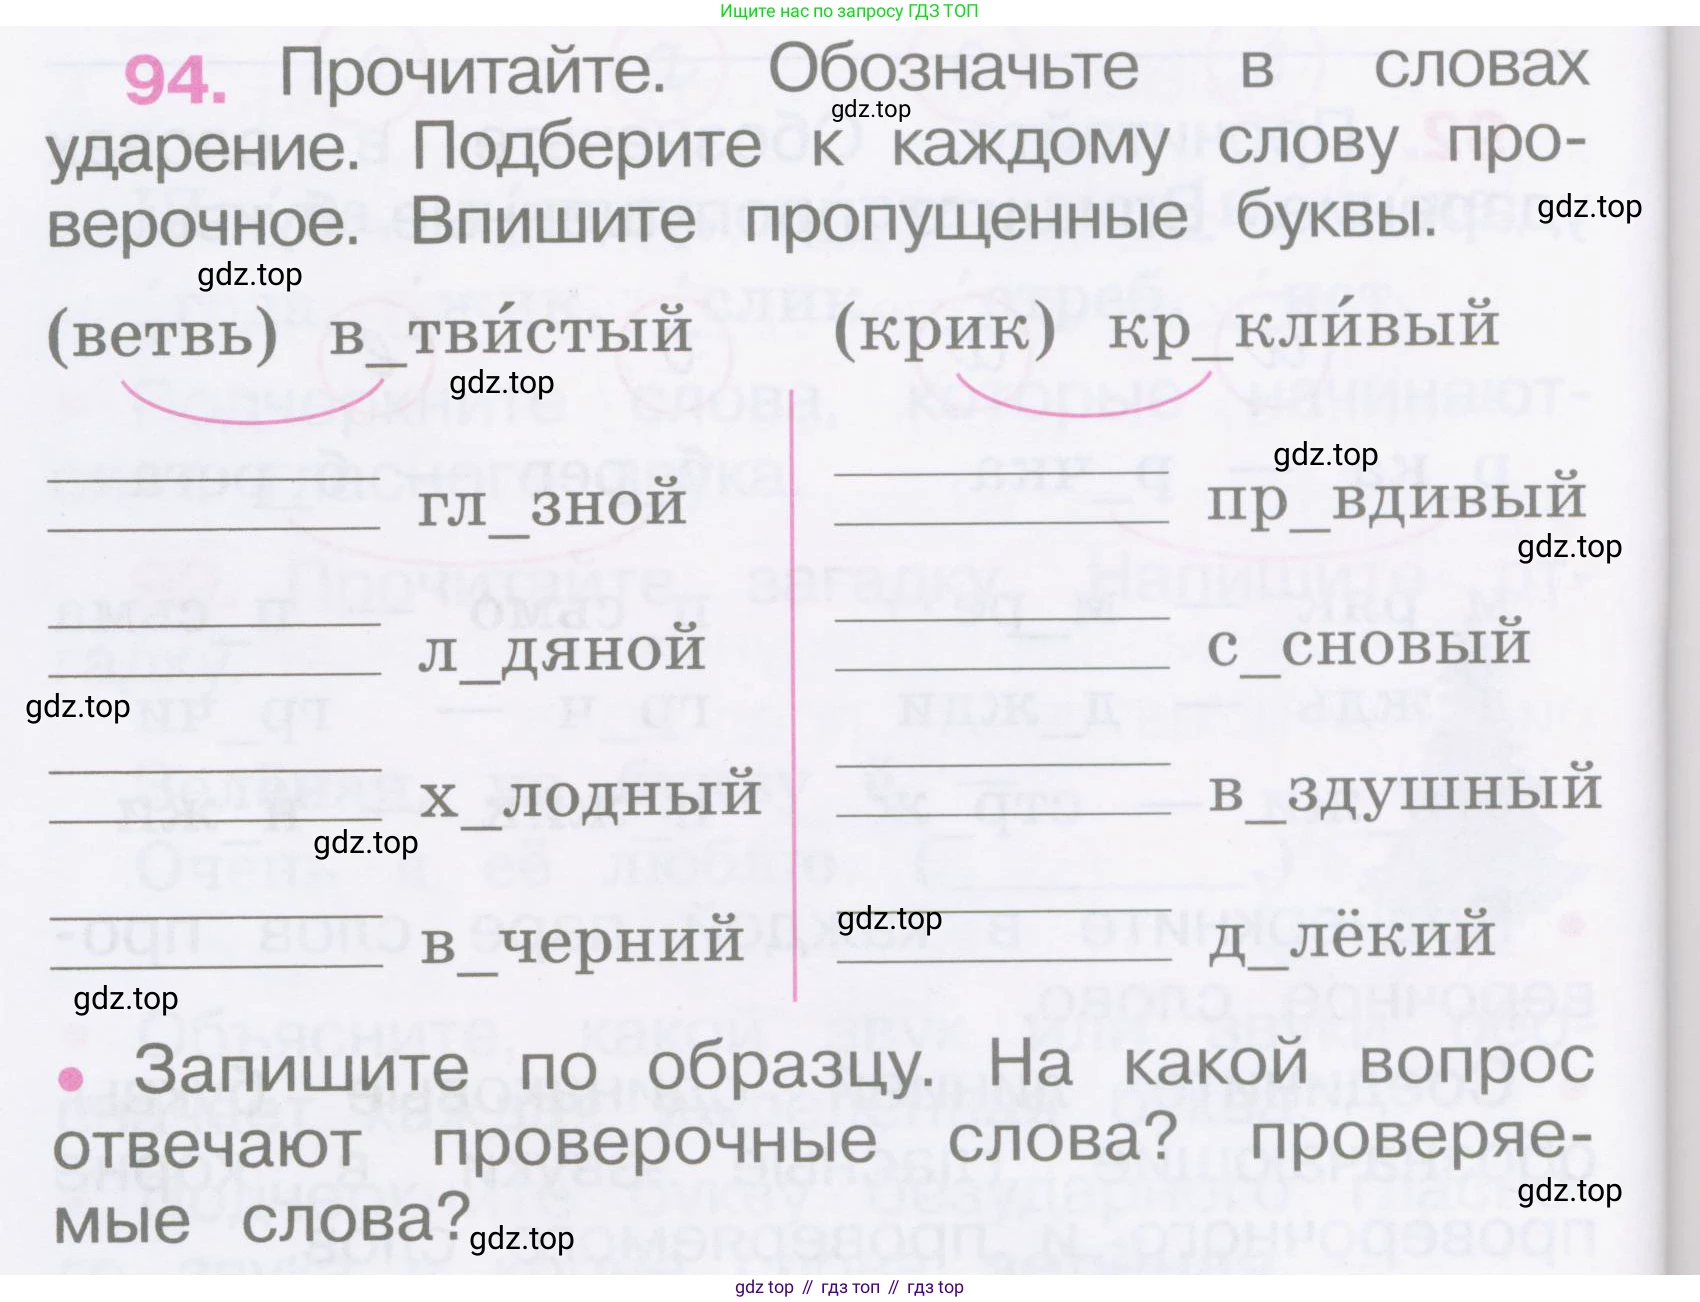 Ищите нас по запросу ГДЗ ТОП
94. Прочитайте. Обозначьте в словах
gdz.top
ударение. Подберите к каждому слову про-
верочное. Впишите пропущенные буквы.
gdz.top
gdz.top
(ветвь) в_тви́стый (крик) кр_кли́вый
gdz.top
gdz.top
гл_зной пр_вдивый
gdz.top
л_дяной с_сновый
gdz.top
х_лодный в_здушный
gdz.top
gdz.top
в_черний д_лёкий
gdz.top
• Запишите по образцу. На какой вопрос
отвечают проверочные слова? проверяе-
gdz.top
мые слова?
gdz.top
gdz top // гдз топ // гдз top